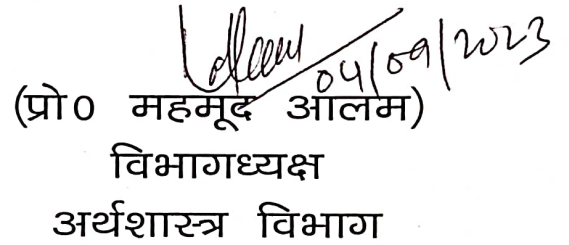 04/09/2023
(प्रो0 महमूद आलम)
विभागध्यक्ष
अर्थशास्त्र विभाग